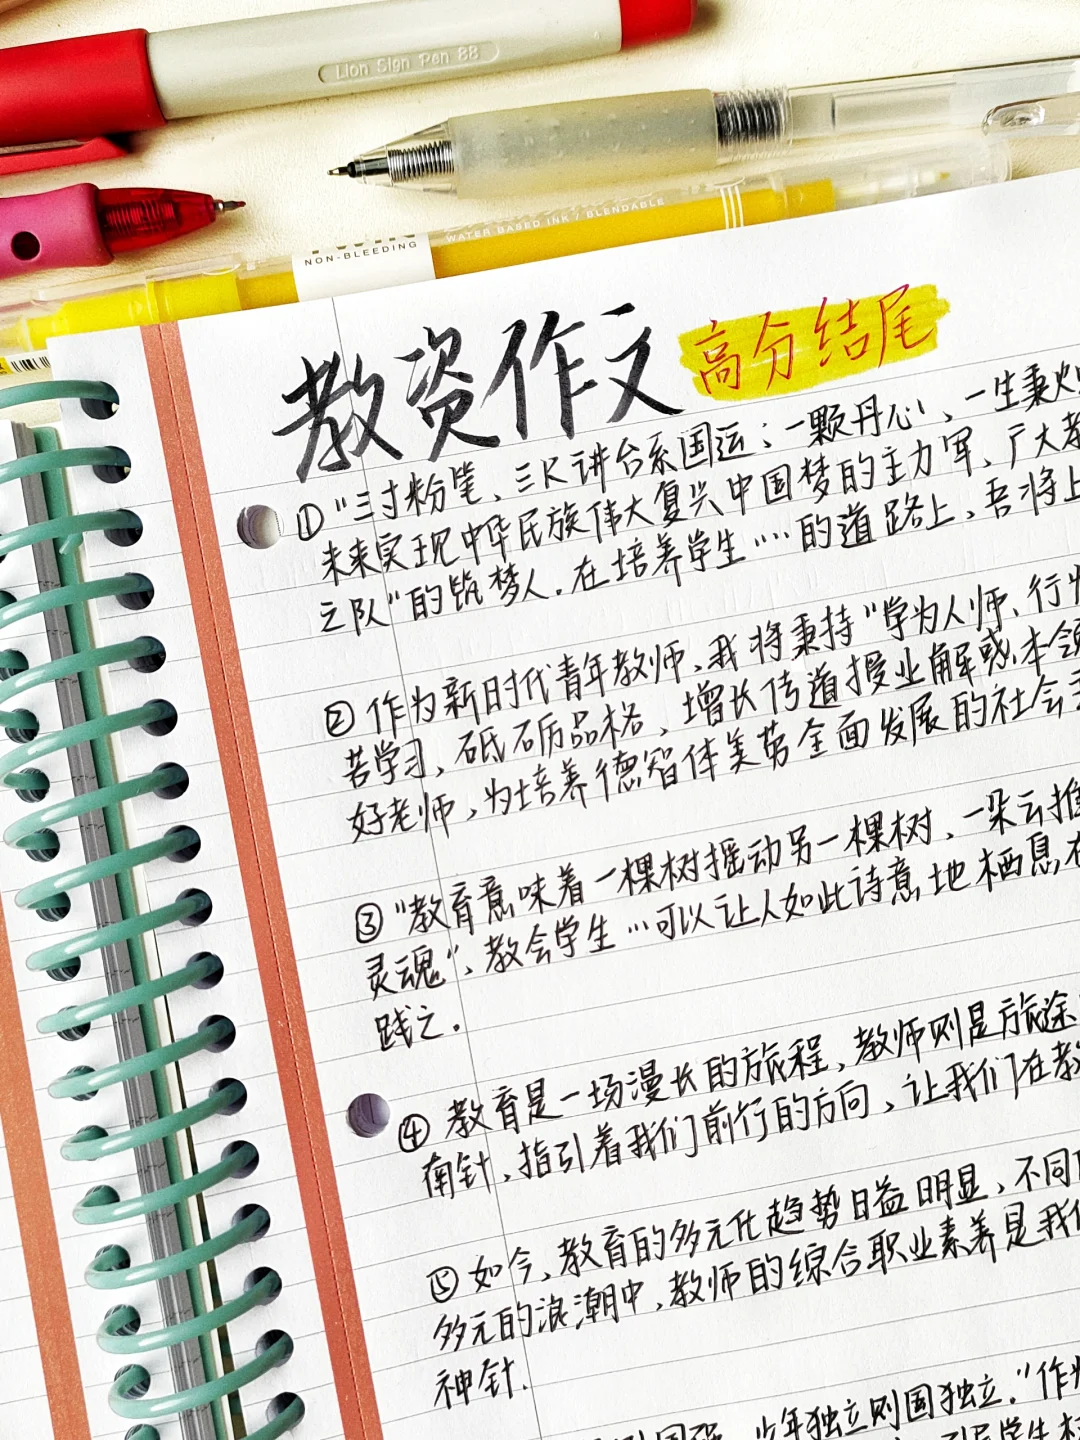 Lion Sign Pen 88
WATER BASED INK / BLENDABLE
NON-BLEEDING
教资作文 高分结尾
①"三寸粉笔、三尺讲台系国运;一颗丹心、一生秉火
未来实现中华民族伟大复兴中国梦的主力军、广大教
之队"的筑梦人.在培养学生……的道路上,吾将上
②作为新时代青年教师,我将秉持"学为人师、行为
苦学习,砥砺品格,增长传道授业解惑本领
好老师,为培养德智体美劳全面发展的社会主
③"教育意味着一棵树摇动另一棵树、一朵云推
灵魂",教会学生…可以让人如此诗意地栖息在
践之.
④教育是一场漫长的旅程,教师则是旅途
南针,指引着我们前行的方向,让我们在教
⑤如今,教育的多元化趋势日益明显,不同
多元的浪潮中,教师的综合职业素养是我们
神针.
国强,少年独立则国独立."作为